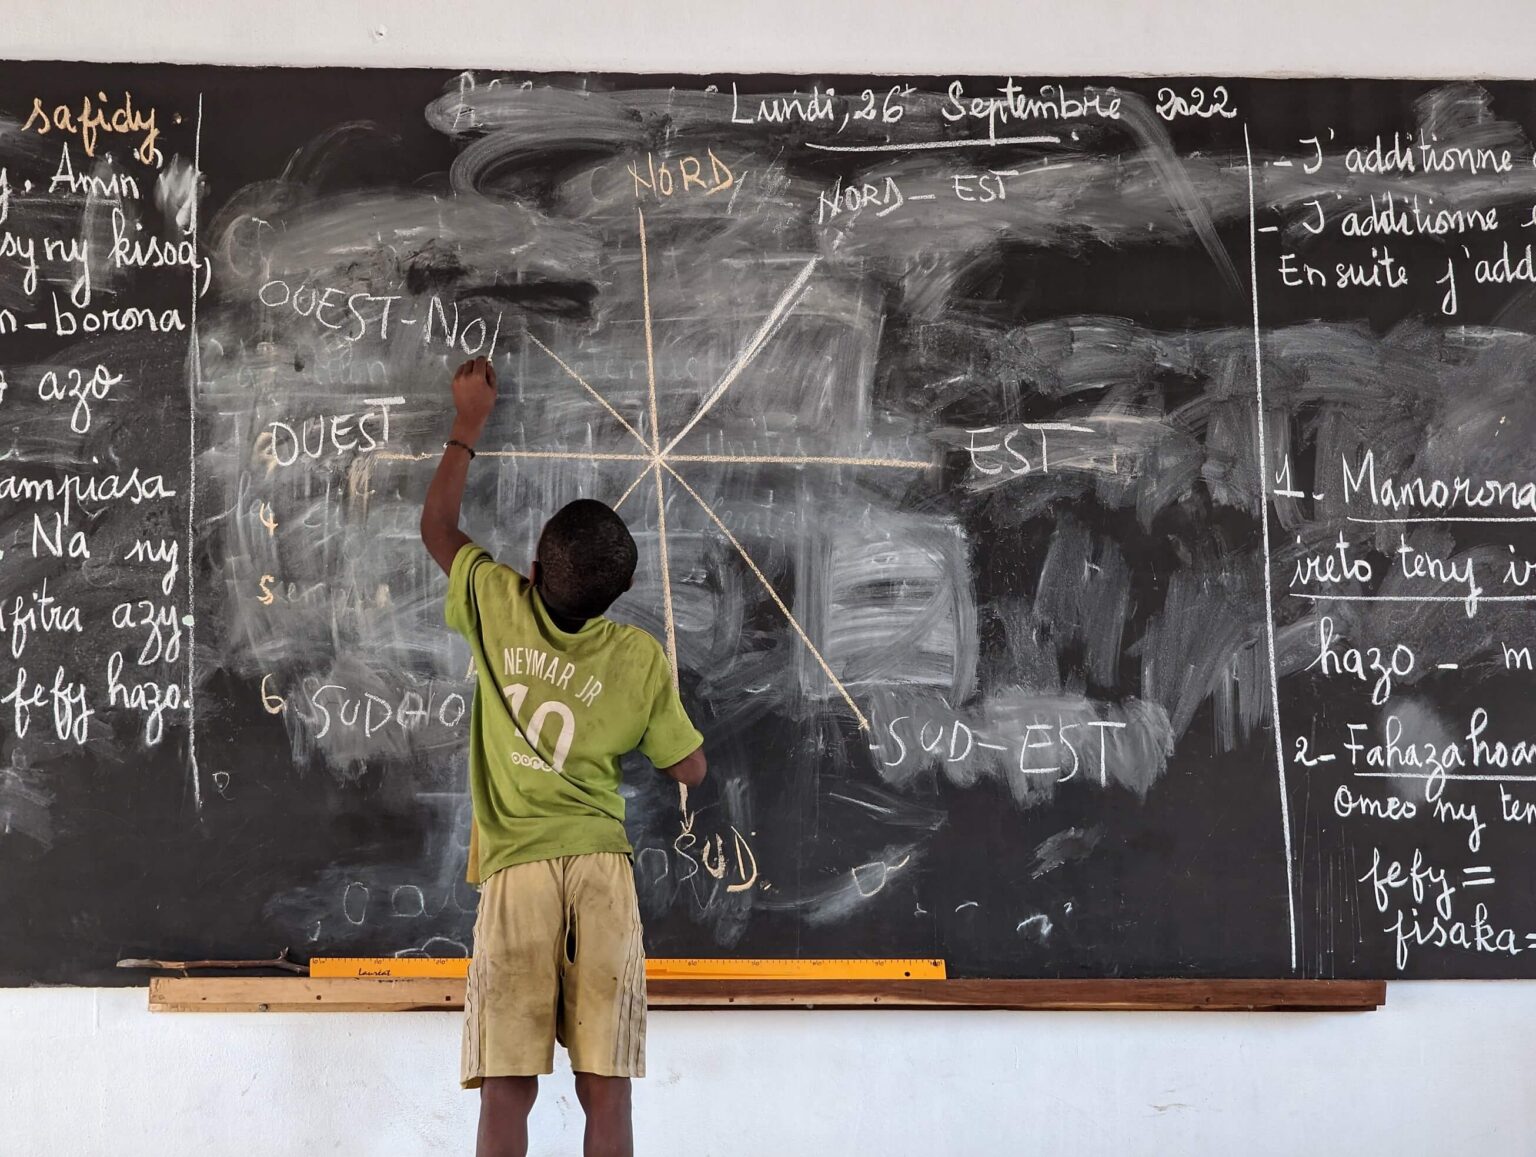 safidy.
Amin'
ny kisoa,
n-borona
azo
ampiasa
. Na ny
fitra azy.
fefy hazo.
Lundi, 26 Septembre 2022
NORD
NORD-EST
OUEST-NO
OUEST
EST
4
5
6 SUD-O
-SUD-EST
SUD.
NEYMAR JR
10
Lauréat
- J'additionne
- J'additionne
Ensuite j'add
1- Mamorona
ireto teny ir
hazo - m
2- Fahazahoa
omeo ny ten
fefy =
fisaka =